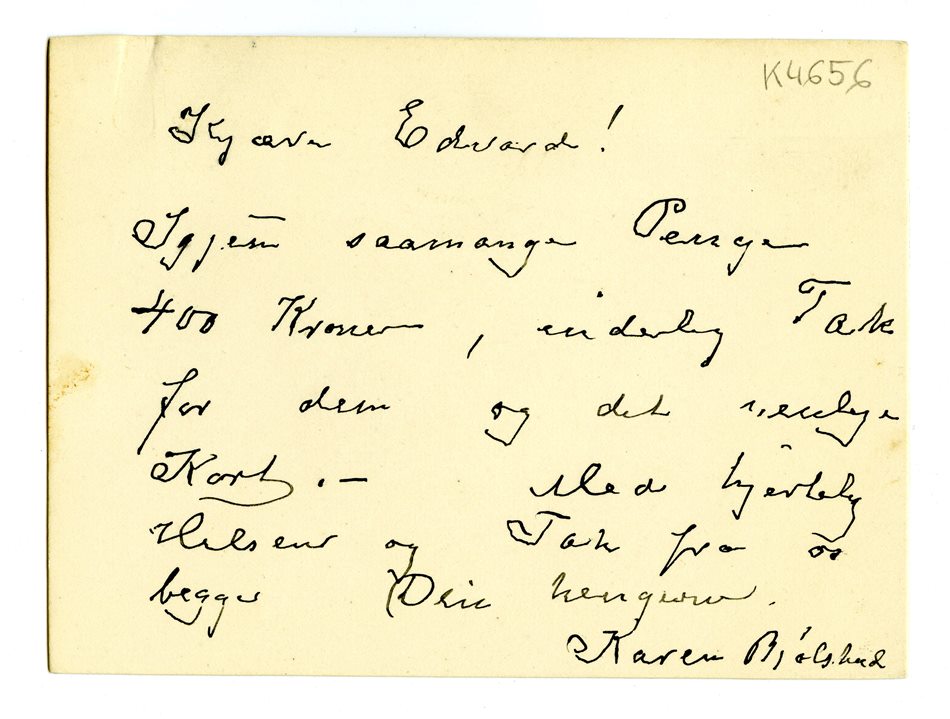 K4656
Kjære Edvard!
Igjen̄ saamange Penge
400 Kroner, inderlig Tak
for dem og det venlige
Kort. — Med hjertelig
Hilsener og Tak fra os
begge Din hengivne.
Karen Bjølstad